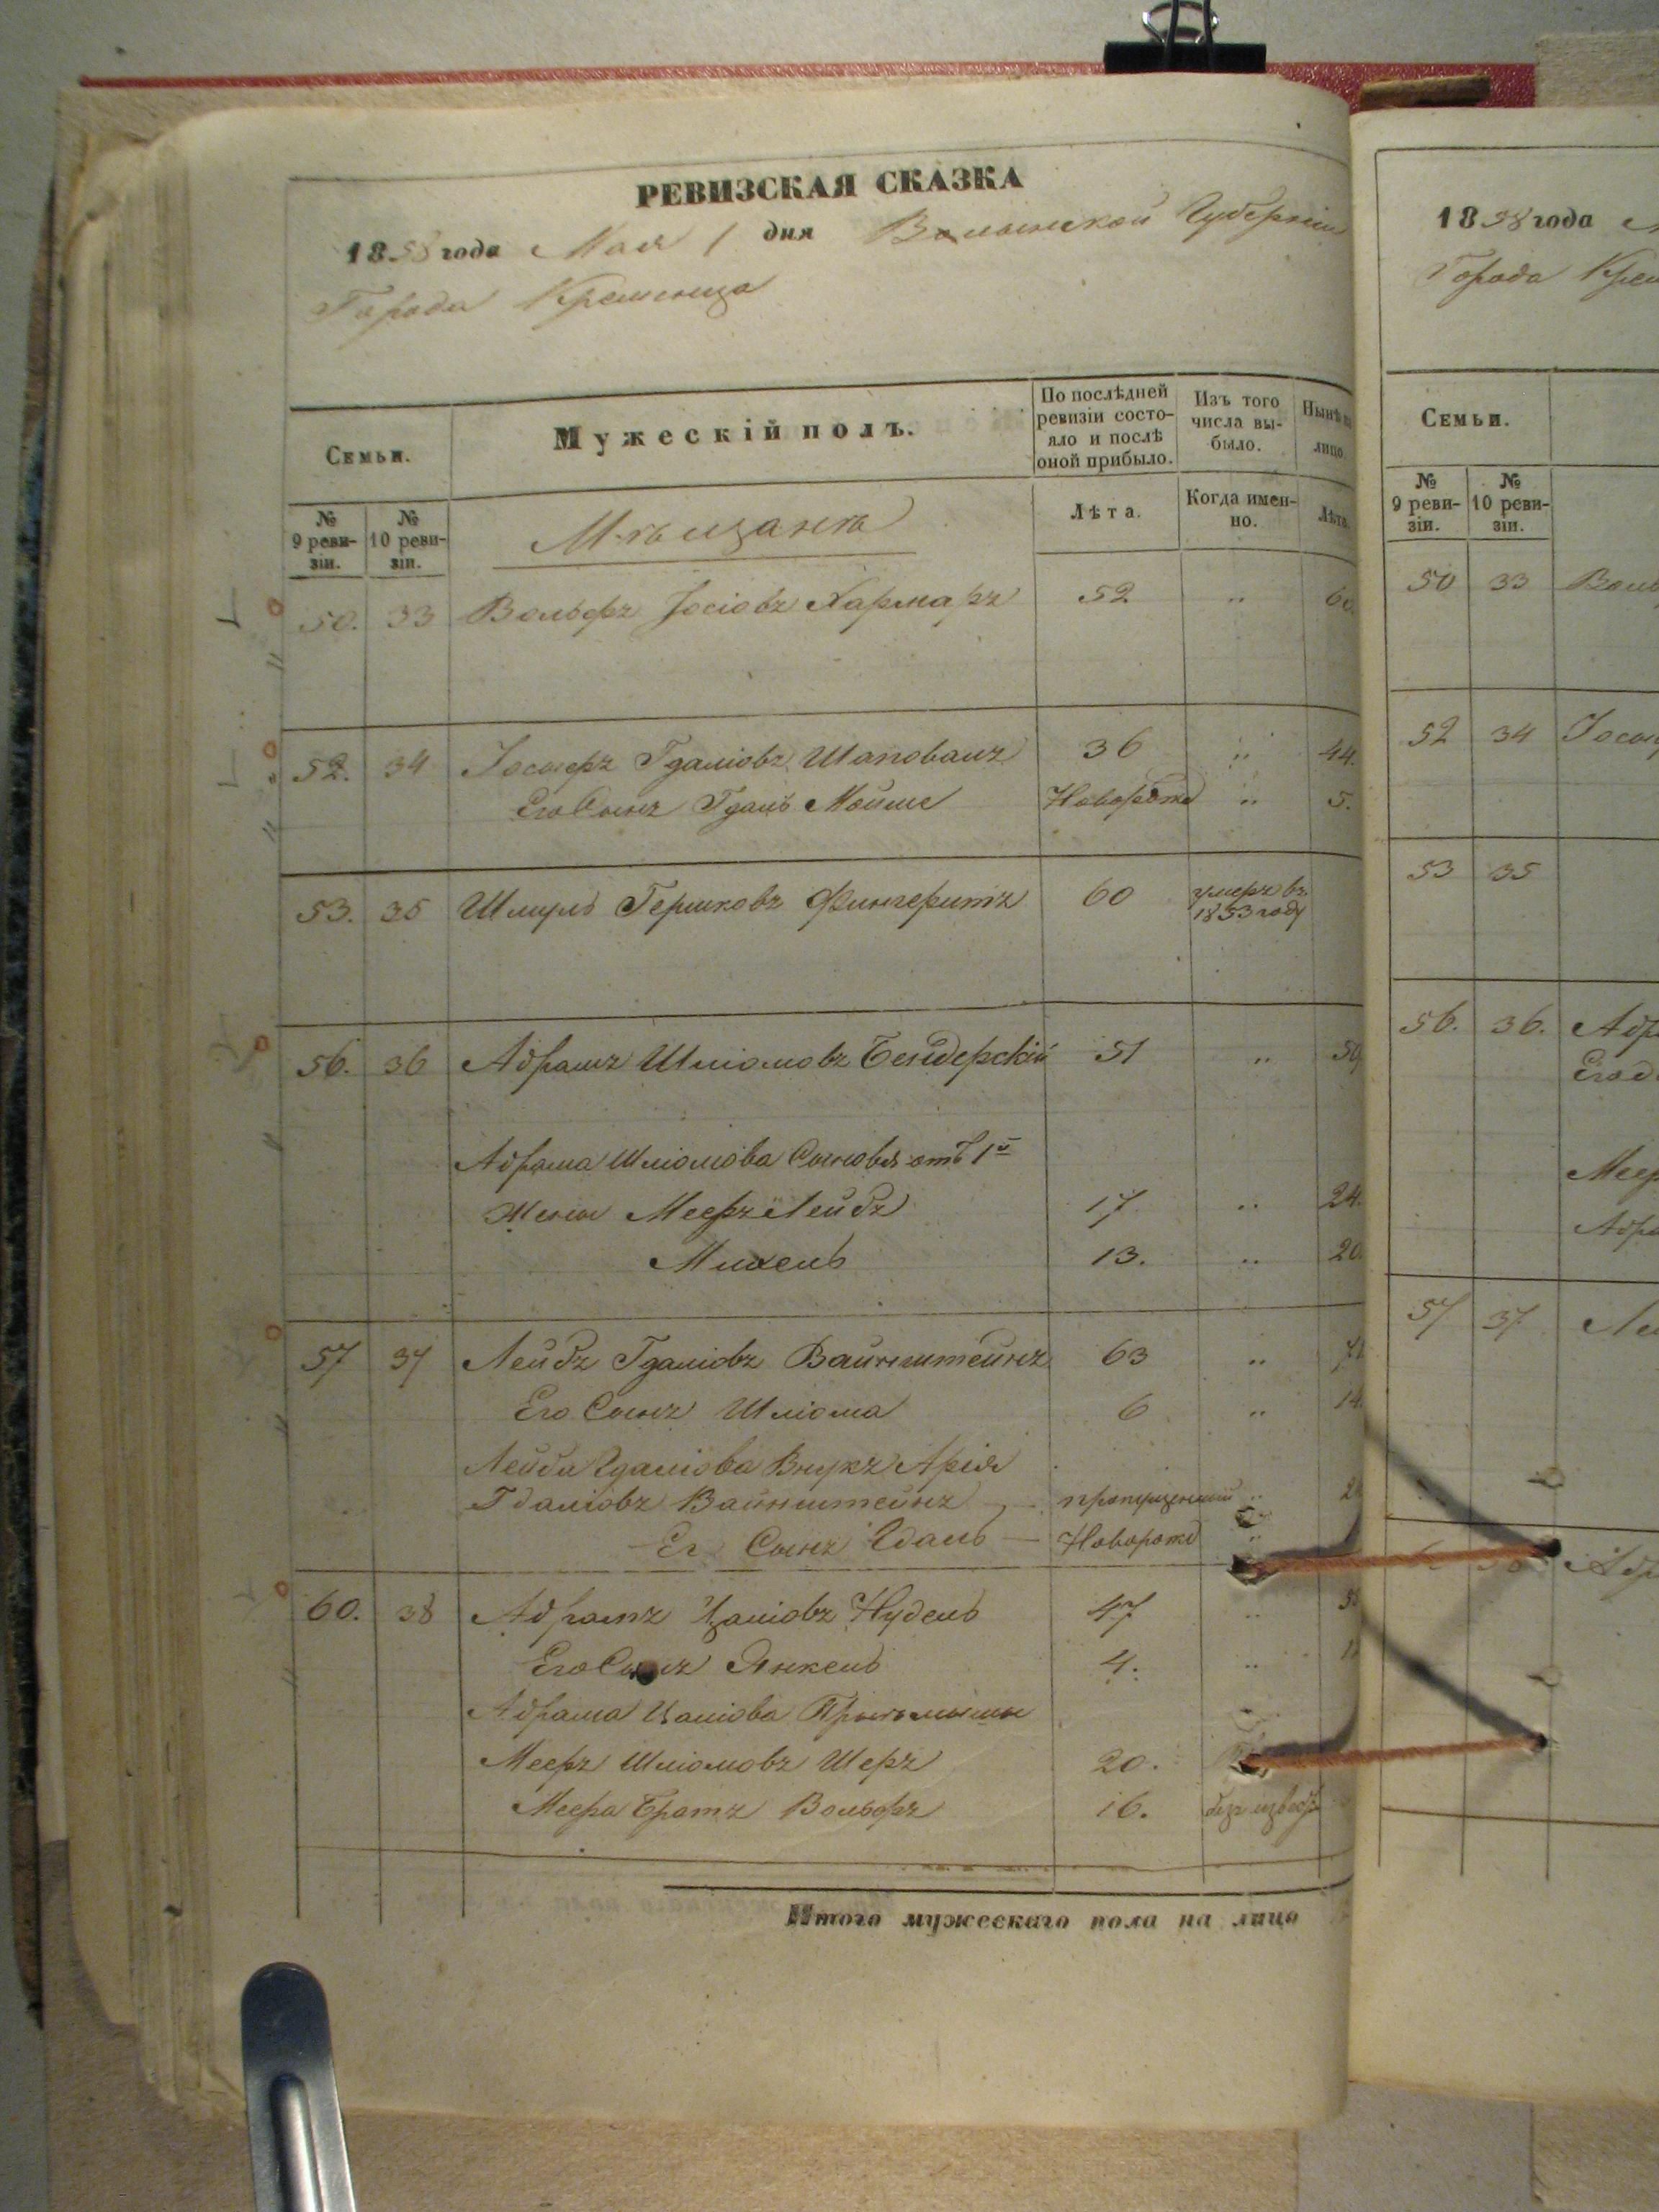 РЕВИЗСКАЯ СКАЗКА
1858 года Мая 1 дня Волынской Губерніи
Города Кременца
Семьи.
Мужескій полъ.
По послѣдней ревизіи состояло и послѣ оной прибыло.
Изъ того числа выбыло.
Нынѣ на лицо.
№ 9 ревизіи.
№ 10 ревизіи.
Мѣщанѣ
Лѣта.
Когда именно.
Лѣта.
50. 33 Вольфъ Іосіовъ 52 " 60
52. 34 Іосифъ Гдаліовъ Шаповалъ 36 " 44.
Его Сынъ Гдаль Мойше Новорожд " 5.
53. 35 Шмуль Гершковъ Фингеритъ 60 умеръ въ
1853 году
56. 36 Абрамъ Шліомовъ Бендерскій 51 " 59
Абрама Шліомова Сыновья отъ 1й
Жены Мееръ Лейбъ 17 " 24.
Михель 13. " 20
57 37 Лейбъ Гдаліовъ Вайнштейнъ 63 " 71
Его Сынъ Шліома 6 " 14.
Лейба Гдаліова Внукъ Арія
Гдаліовъ Вайнштейнъ пропущенный "
Ег Сынъ Гдаль — Новорожд "
60. 38 Абрамъ Цаліовъ Нудель 47 "
Его Сынъ Янкель 4. "
Абрама Цаліова
Мееръ Шліомовъ Шеръ 20.
Меера Братъ Вольфъ 16.
Итого мужескаго пола на лицо
1858 года
Города Крем
Семьи.
№ 9 ревизіи.
№ 10 ревизіи.
50 33 Воль
52 34 Іоси
53 35
56. 36. Абр
Его
Меер
Абра
57 37 Ле
Абр